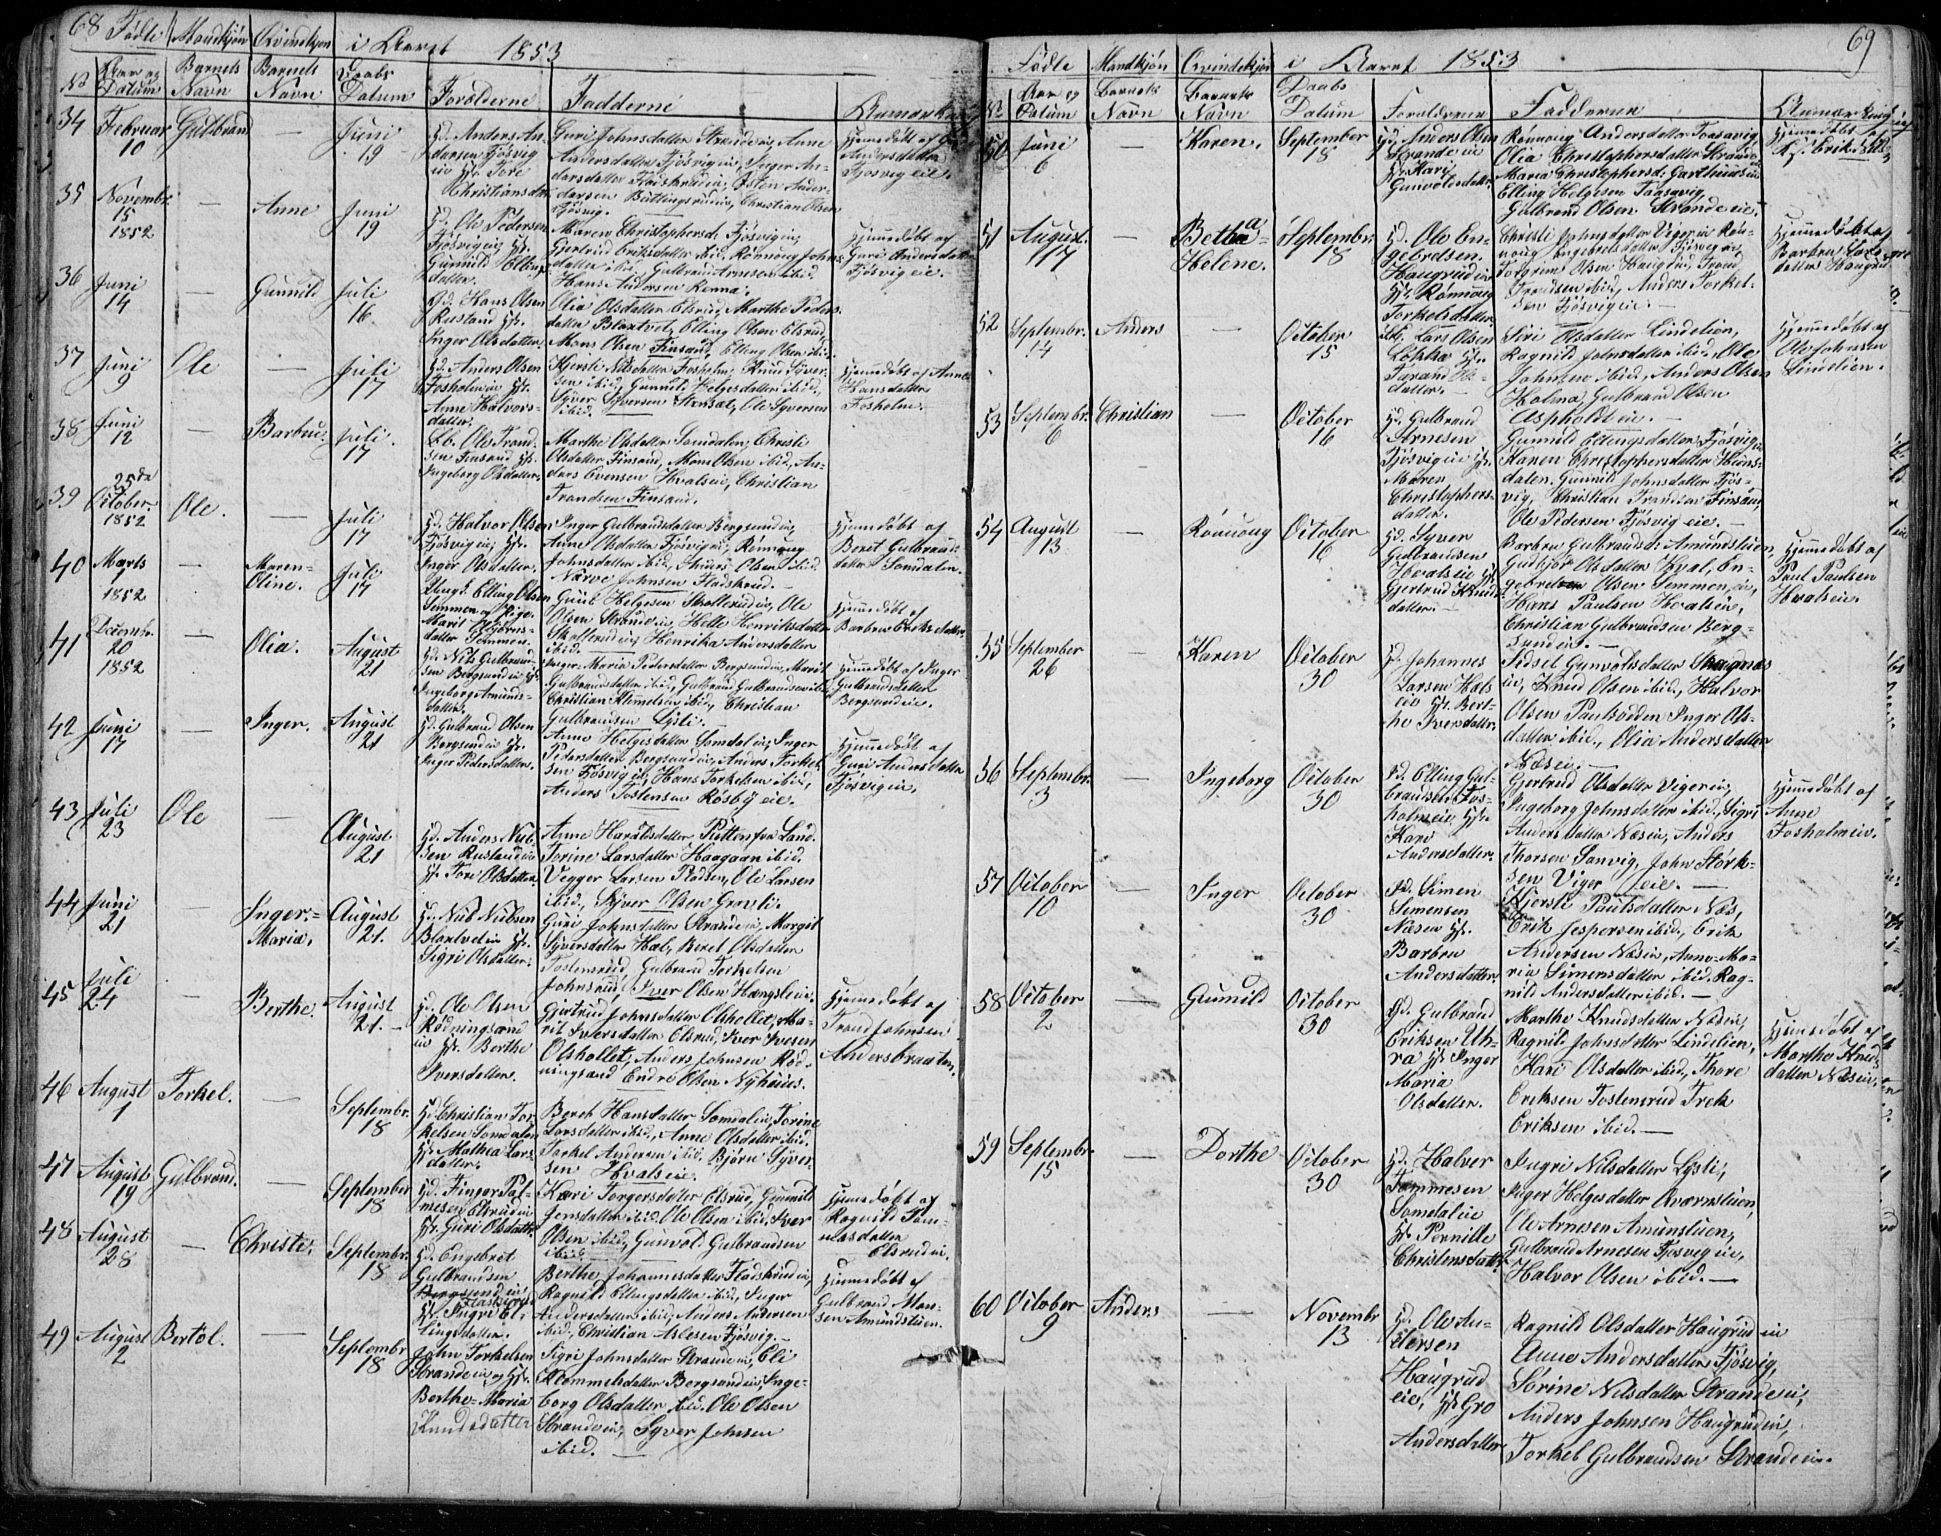 68 Födte Mandkjön Qvindekjön i Aaret 1853
No Aar og Datum Barnets Navn Barnets Navn Daabs Datum Forældrene Fadderne
34 Februar 10 Gulbrand — Juni 19
Gd. Anders An-
dersen Fjösvig
eie Hst. Tore
Christiansdtr
Guri Johnsdatter Strandeie, Anne
Andersdatter Fjösvigeie, Inger An-
dersdatter Östen Ander-
darsen Christian Olsen
Fjösvig.
Hjemmedöbt af
Andersdatter
Fjösvig eie.
35 November 15 1852 — Anne Juni 19
Gd. Ole Pedersen
Fjösvigeie Hst.
Gunnild Elling
datter.
Maren Christophersd. Fjösvigeie,
Gjertrud Eriksdatter ibid. Rönnoug Johns-
datter ibid, Gulbrand Arnesen ibid.
Hans Andersen Renna.
Hjemmedöbt af
Guri Andersdatter
Fjösvig eie.
36 Juni 14 — Gunnild Juli 16
Gd. Hans Olsen
Rustand Hst.
Inger Olsdatter
Olia Olsdatter Elsrud, Marthe Peders
datter Blaxtvet, Elling Olsen Elsrud,
Mons Olsen Finsand, Elling Olsen ibid.
37 Juni 9 Ole — Juli 17
Gd. Anders Olsen
Fosholmeie Hst.
Anne Halvors-
datter.
Kjersti Nilsdatter Fosholm, Knud Syver-
sen ibid, Gunnil Helgesdatter ibid,
Syver Syversen Ole Syversen
ibid.
Hjemmedöbt af Anne
Hansdatter
Fosholm.
38 Juni 12 — Barbru. Juli 17
Ole Trond-
sen Finsand Hst.
Ingeborg Olsdatter.
Marthe Olsdatter Somdalen, Christi
Olsdatter Finsand, Mons Olsen ibid, An-
ders Evensen Hvalseie, Christian
Trondsen Finsand.
39 25de October 1852 Ole. — Juli 17
Gd. Halvor Olsen
Fjösvigeie, Hst.
Inger Olsdatter.
Inger Gulbrandsdatter Bergsundeie,
Anne Olsdatter Fjösvigeie, Rönnoug
Johnsdatter ibid, Anders Olsen ibid.
Narve Johnsen Fladskrud.
Hjemmedöbt af
Beret Gulbrands-
datter Somdalen.
40 Marts 1 1852 — Maren-Oline. Juli 17
Ungk. Elling Olsen
Semmen og Pige
Marit
datter Semmen.
Guul Helgesen Skollerudeie, Ole
Olsen Strandeie, Helle Henriksdatter
Skollerudeie, Henrika Andersdatter
ibid.
Hjemmedöbt af
Barbru Eriksdatter
41 Decembr. 20 1852 — Olia. August 21
Gd. Nils Gulbrand-
sen Bergsundeie Hst.
Ingeborg Amunds-
datter.
Inger Maria Pedersdatter Bergsundeie, Marit
Gulbrandsdatter ibid, Gulbrand Gulbrandsen ibid
Christian Klemetsen ibid, Christian
Gulbrandsen Lysli.
Hjemmedöbt af Inger
Gulbrandsdatter
Bergsundeie.
42 Juni 17 — Inger. August 21
Gd. Gulbrand Olsen
Bergsundeie Hst.
Inger Pedersdatter.
Anne Helgesdatter Somdaleie, Inger
Pedersdatter Bergsundeie, Anders Torkel-
sen Fjösvigeie, Hans Torkelsen ibid,
Anders Tostensen Rösby eie.
Hjemmedöbt af
Guri Andersdatter
Fjösvigeie,
43 Juli 23 Ole — August 21
Gd. Anders Niel-
sen Rustandeie
Hst. Tore Olsdatter.
Anne Haraldsdatter Putten fra Land.
Torine Larsdatter Haagaan ibid.
Vegger Larsen Pladsen, Ole Larsen
ibid, Syver Olsen Grösli.
44 Juni 21 — Inger-Maria. August 21.
Gd. Niels Nielsen
Blaxtveteie Hst.
Sigri Olsdatter.
Guri Johnsdatter Strandeie, Margit
Syversdatter Hæl, Beret Olsdatter
Tostensrud, Gulbrand Torkelsen
Johnsrud, Iver Olsen Hængsleeie.
45 Juli 24 — Berthe. August 21.
Gd. Ole Olsen
Rödningsand
eie Hst. Berthe
Iversdatter.
Gjertrud Johnsdatter Olshollet, Ma-
rit Iversdatter Elsrud, Iver Iversen
Olshollet, Anders Johnsen Röd-
ningsand Endre Olsen Nyhuus.
Hjemmedöbt af
Trond Johnsen
Andersbraaten.
46 August 1 Torkel. — Septembr. 18
Gd. Christian Tor-
kelsen Somdalen
Hst. Mathea Lars-
datter.
Beret Hansdatter Somdaleie, Torine
Larsdatter ibid, Anne Olsdatter ibid.
Torkel Andersen ibid. Björn Syver-
sen Hvalseie.
47 August 19 Gulbrand. — September 18
Gd. Finger Tol-
mesen Elsrudeie
Hst. Guri Olsdattr.
Kari Torgersdatter Elsrud, Gunnild
Jensdatter ibid. Ole Olsen ibid, Iver
Olsen ibid, Gunvol Gulbrandsen
ibid
Hjemmedöbt af
Ragnild Tom-
masdatter
Elsrudeie.
48 August 28 — Christi. Septembr. 18
Gd. Engebret
Gulbrandsen
Bergsundeie
Hst. Ingri El-
lingsdatter.
Berthe Johannesdatter Fladskrudeie,
Ragnild Ellingsdatter ibid, Inger
Andersdatter ibid, Anders Andersen
ibid, Christian Aslesen Fjösvig.
Hjemmedöbt af
Gulbrand Mon-
sen Amundslien.
49 August 2 Bertol. — Septembr 18
John Torkelsen
Strandeie og Hst.
Berthe-Maria
Knudsdatter
Sigri Johnsdatter Strandeie, Eli
Klemmetsdatter Bergsundeie, Inge-
borg Olsdatter ibid. Ole Olsen
Strandeie, Syver Johnsen
ibid.
69
Födte Mandkjön Qvindekjön i Aaret 1853
No Aar og Datum Barnets Navn Barnets Navn Daabs Datum Forældrene Fadderne
50 Juni 6 — Karen. September 18
Gd. Anders Olsen
Strandeie
Hst. Kari
Gunvolsdatter.
Rönnoug Andersdatter Taasavig
Olia Christophersdatter Strand
Maria Christophersd: Garthuuseie
Elling Helgesen Taasavig.
Gulbrand Olsen Strandeie.
Hjemmedöbt af
51 August. 17 — Betha-Helene. September 18
Gd. Ole En-
gebretsen.
Haugrudeie
Hst. Rönnoug
Torkelsdatter.
Christi Johnsdatter Vigereie, Rön-
noug Engebretsdatter Fjösvigeie,
Torgrim Olsen Haugrud, Trond
Trondsen ibid, Anders Torkel-
sen Fjösvigeie.
Hjemmedöbt af
Barbru
datter Haugrud
52 Septembr. 14 Anders — October 15
Lars Olsen
Löpka Hst.
Tarand
datter.
Siri Olsdatter Lindelien,
Ragnild Johnsdatter ibid, Ole
Johnsen ibid, Anders Olsen
Holma, Gulbrand Olsen
Aspholdteie.
Hjemmedöbt af
Ole Johnsen
Lindelien.
53 Septembr. 6 Christian — October 16
Gd. Gulbrand
Arnesen
Fjösvigeie Hst.
Maren
Christophers-
datter.
Gunnild Ellingsdatter Fjösvig
Karen Christophersdatter Heims-
dalen. Gunnild Johnsdatter Fjös-
vig, Christian Trondsen Finsand,
Ole Pedersen Fjösvig eie.
54 August 13 — Rönnoug October 16
Gd. Syver
Gulbrandsen
Hvalseie Hst.
Gjertrud Knuds
datter.
Barbru Gulbrandsd: Amundslien,
Gudbjör Olsdatter Hval, En-
gebret Olsen Semmen eie,
Hans Paulsen Hvalseie,
Christian Gulbrandsen Berg-
sundeie.
Hjemmedöbt af
Paul Paulsen
Hvalseie.
55 September 26 — Karen October 30
Gd. Johannes
Larsen Hæls
eie Hst. Bert-
he Iversdatter.
Sidsel Gunvolsdatter Skagnæs
eie, Knud Olsen ibid, Halvor
Olsen Paulsodden Inger Ols-
datter ibid, Olia Andersdatter
Næseie.
56 Septembr. 3 — Ingeborg October 30
Gd. Elling Gul-
brandsen Fos-
holmeie, Hst.
Kari
Andersdatter.
Gjertrud Olsdatter Vigereie,
Ingeborg Johnsdatter ibid, Sigri
Andersdatter Næseie, Anders
Thorsen Sanvig, John Störk-
sen Viger eie.
Hjemmedöbt af
Anne
Fosholmeie.
57 October 10 — Inger October 30
Gd. Simen
Simensen
Næseie Hst.
Barbru
Andersdatter.
Kjersti Paulsdatter Næs,
Erik Jespersen ibid, Erik
Andersen Næseie, Anne-Ma-
ria Simensdatter ibid, Rag-
nild Andersdatter ibid.
58 October 2 — Gunnild October 30
Gd. Gulbrand
Eriksen Uh-
ra Hst. Inger
Maria
Olsdatter.
Marthe Knudsdatter Næseie,
Ragnild Johnsdatter Lindelien,
Kari Olsdatter ibid, Thore
Eriksen Tostensrud Trek
Eriksen ibid.
Hjemmedöbt af
Marthe Knuds
datter Næseie.
59 Septembr. 15 — Dorthe October 30
Gd. Halver
Tommesen
Somdaleie
Hst. Pernille
Christensdattr.
Ingri Nilsdatter Lysli,
Inger Helgesdatter Qvernslien,
Ole Arnesen Amunslien,
Gulbrand Arnesen Fjösvig eie,
Halvor Olsen ibid.
60 October 9 Anders — Novembr 13
Gd. Ole An-
dersen
Haugrud
eie, Hst. Gro
Andersdatter
Ragnild Olsdatter Haugrudeie
Anne Andersdatter Fjösvig,
Sörine Nilsdatter Strandeie,
Anders Johnsen Haugrudeie,
Torkel Gulbrandsen Strandeie.